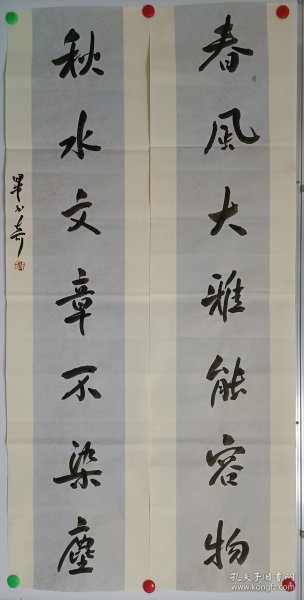 春風大雅能容物
秋水文章不染塵
孔夫子旧书网